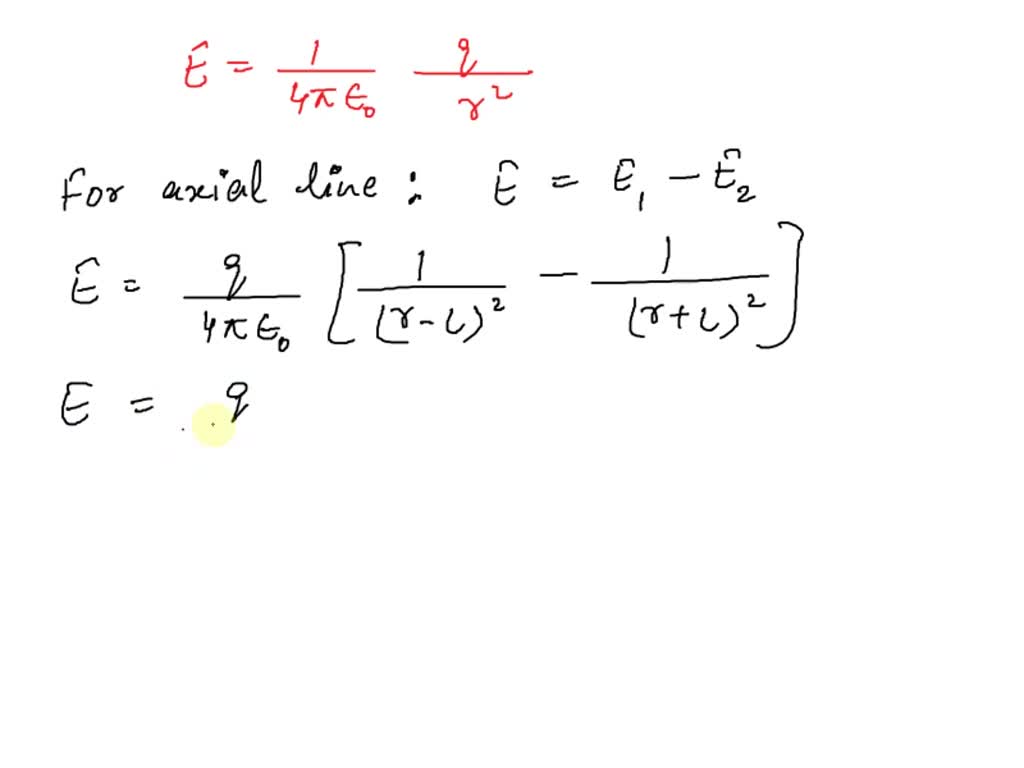 Ē = 1/4πϵ₀ q/r²
For axial line : Ē = Ē₁ − Ē₂
Ē = q/4πϵ₀ [1/(r-l)² − 1/(r+l)²]
E = q